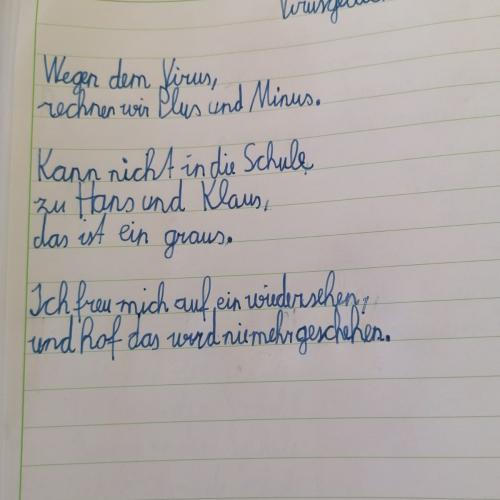 Wegen dem Virus,
rechnen wir Plus und Minus.
Kann nicht in die Schule
zu Hans und Klaus,
das ist ein graus.
Ich freu mich auf ein wiedersehen,
und hof das wird nie mehr geschehen.